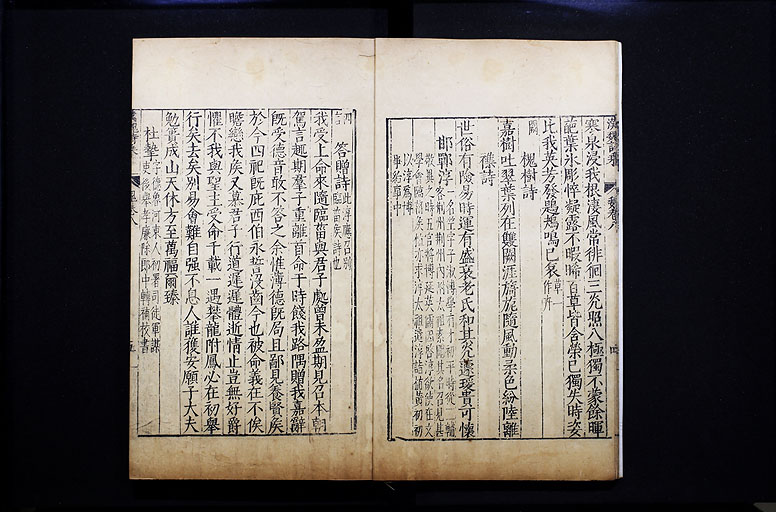 寒泉浸我根淒風常徘徊三光照八極獨不蒙餘暉
葩葉永彫悴凝露不暇晞百草皆含榮已獨失時姿
比我英芳發鶗鴂鳴已哀
闕
槐樹詩
嘉樹吐翠葉列在雙闕涯旖旎隨風動柔色紛陸離
雜詩
世俗有險易時運有盛衰老氏和其光蘧瑗貴可懷
邯鄲淳
四言
答贈詩
我受上命來隨臨菑與君子處曾未盈期見召本朝
駕言趣期羣子重離首命于時餞我路隅贈我嘉辭
既受德音敢不答之余惟薄德既局且鄙見養賢侯
於今四祀既庇西伯永誓沒齒今也被命義在不俟
瞻戀我侯又慕君子行道遲遲體逝情止豈無好爵
懼不我與聖主受命千載一遇攀龍附鳳必在初舉
行矣去矣別易會難自强不息人誰獲安願子大夫
勉簣成山天休方至萬福爾臻
杜摯